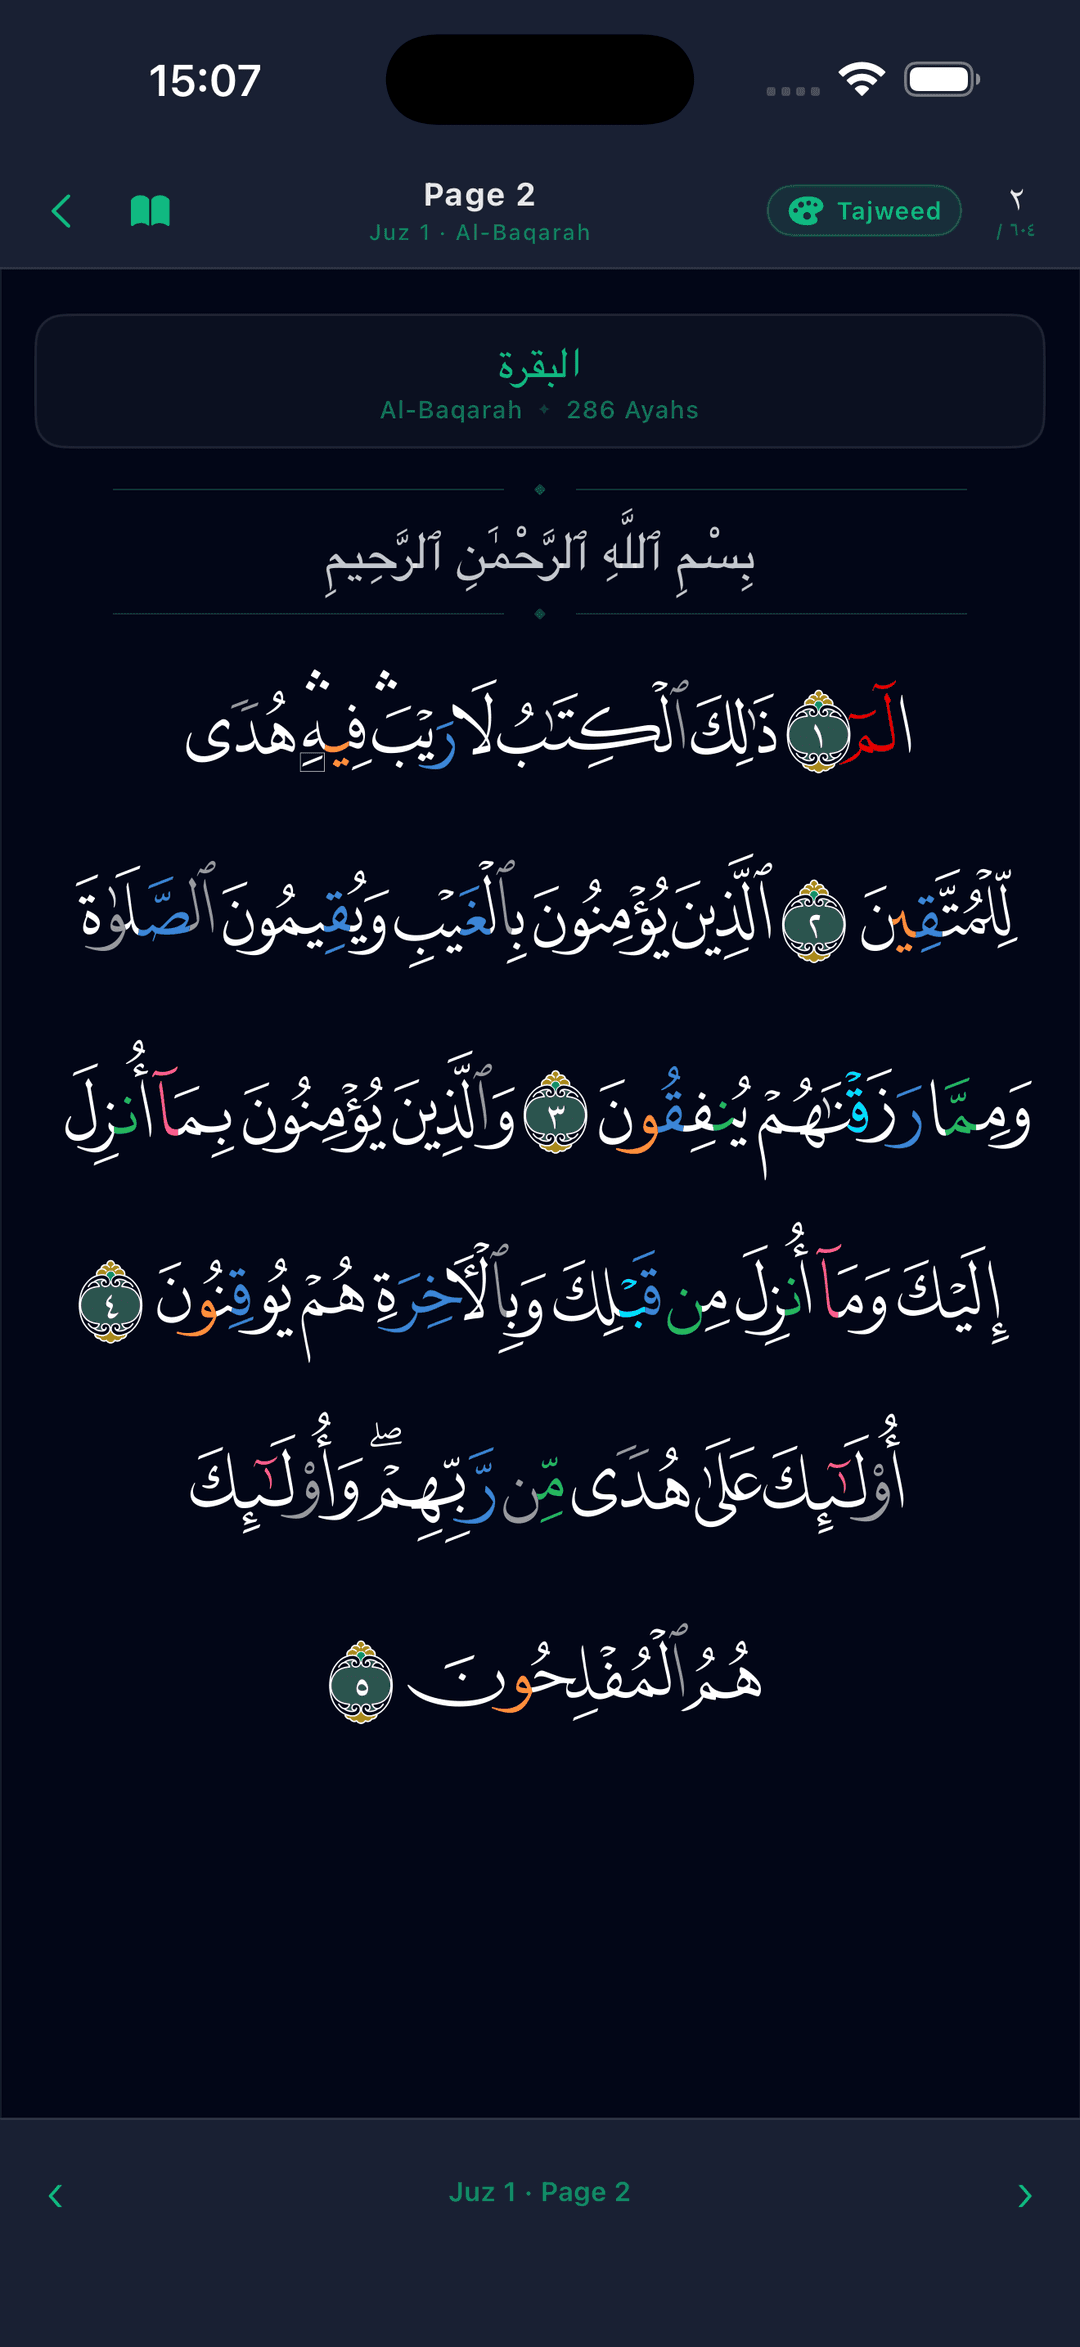 15:07
Page 2
Juz 1 · Al-Baqarah
Tajweed
٢
/ ٦٠٤
البقرة
Al-Baqarah ✦ 286 Ayahs
بِسْمِ ٱللَّهِ ٱلرَّحْمَٰنِ ٱلرَّحِيمِ
الٓمٓ ١ ذَٰلِكَ ٱلْكِتَٰبُ لَا رَيْبَ ۛ فِيهِ ۛ هُدًى
لِّلْمُتَّقِينَ ٢ ٱلَّذِينَ يُؤْمِنُونَ بِٱلْغَيْبِ وَيُقِيمُونَ ٱلصَّلَوٰةَ
وَمِمَّا رَزَقْنَٰهُمْ يُنفِقُونَ ٣ وَٱلَّذِينَ يُؤْمِنُونَ بِمَآ أُنزِلَ
إِلَيْكَ وَمَآ أُنزِلَ مِن قَبْلِكَ وَبِٱلْأَخِرَةِ هُمْ يُوقِنُونَ ٤
أُو۟لَٰٓئِكَ عَلَىٰ هُدًى مِّن رَّبِّهِمْ ۖ وَأُو۟لَٰٓئِكَ
هُمُ ٱلْمُفْلِحُونَ ٥
Juz 1 · Page 2